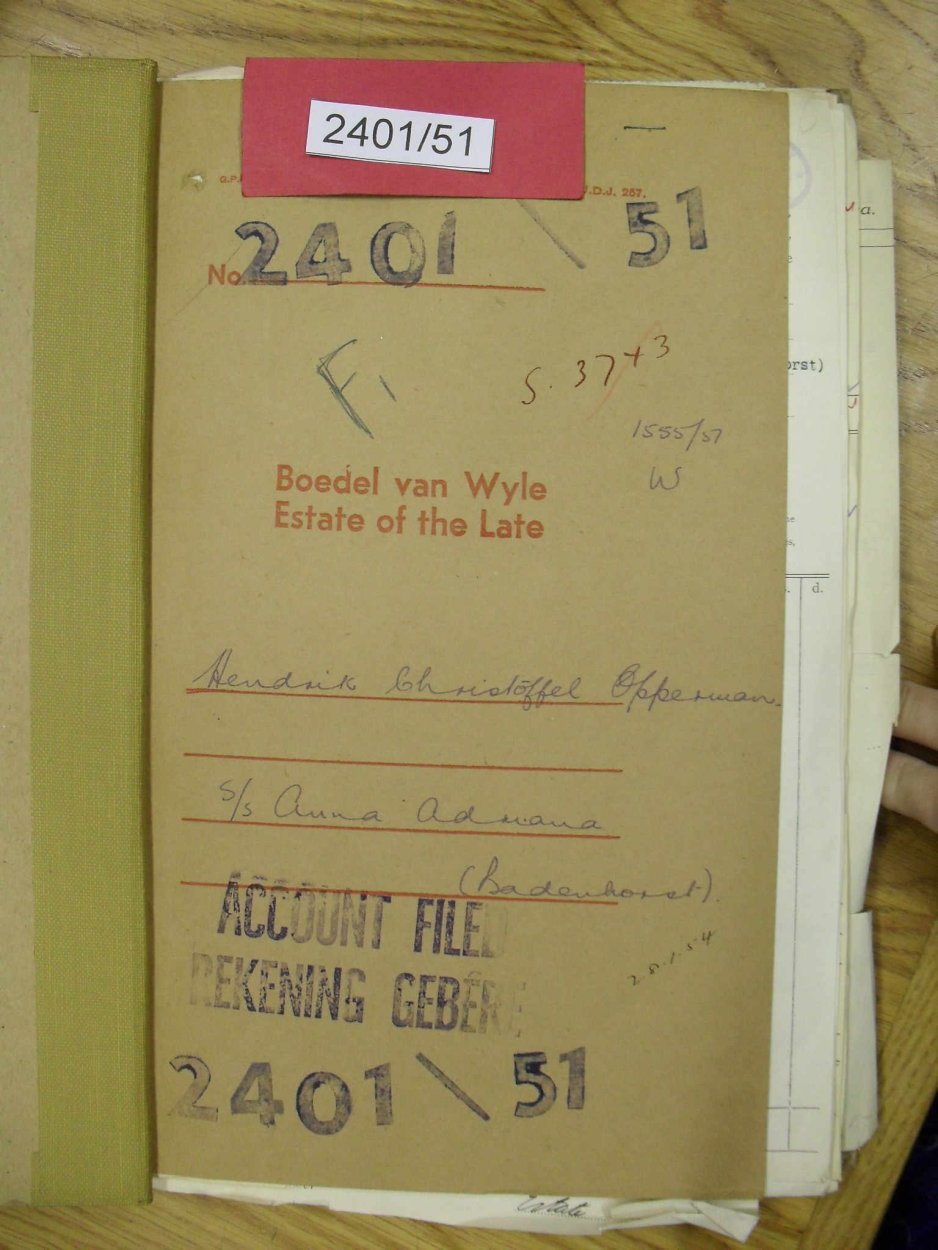 2401/51
G.P.
J.D.J. 287.
a.
No. 2401 \ 51
F.
S. 37 + 3
orst)
1555/51
W
Boedel van Wyle
Estate of the Late
d.
Hendrik Christoffel Opperman
S/s Anna Adriana
(Badenhorst)
ACCOUNT FILED
REKENING GEBÊRE
28.1.54
2401 \ 51
Estate